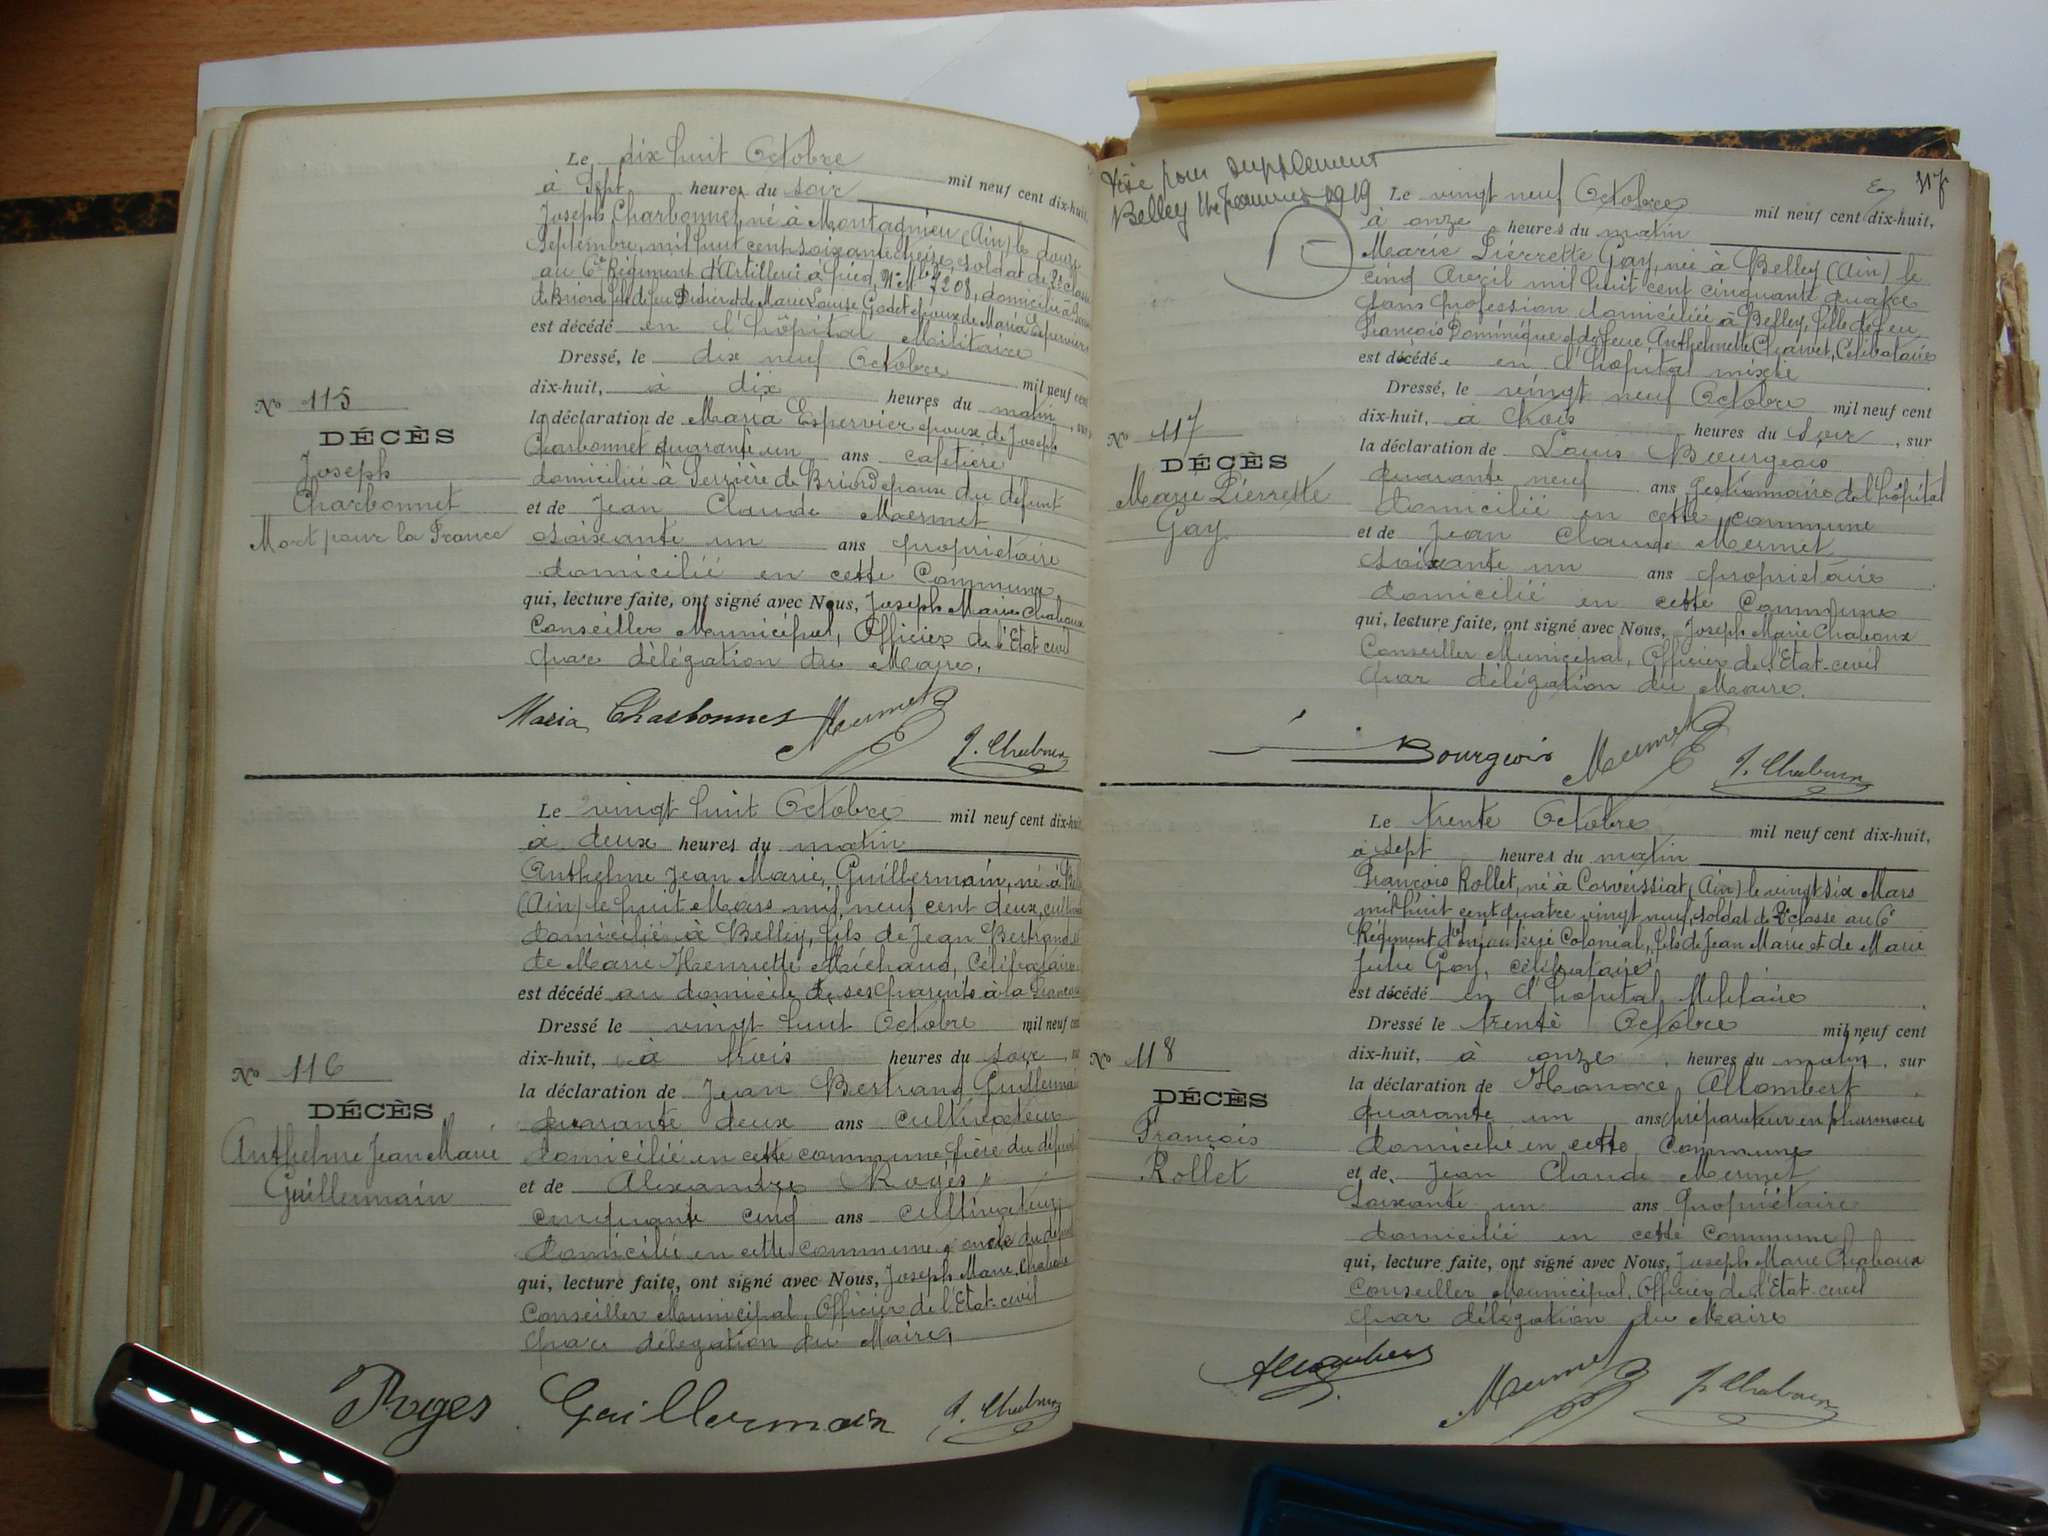 Le dix huit Octobre mil neuf cent dix-huit,
à Sept heures du soir
Joseph Charbonnet, né à Montagnieu (Ain) le douze
Septembre, mil huit cent soixante treize, soldat de 2e classe
au 6e Régiment d'Artillerie à pied, No Mle 7208, domicilié à
de Briord fils de feu Didier et de Marie Louise Godet époux de Maria Espervier
est décédé en l'hôpital Militaire
Dressé, le dix neuf Octobre mil neuf cent
dix-huit, à dix heures du matin, sur
la déclaration de Maria Espervier épouse de Joseph
Charbonnet quarante un ans cafetière
domiciliée à Serrière de Briord épouse du défunt
et de Jean Claude Mermet
soixante un ans propriétaire
domicilié en cette Commune
qui, lecture faite, ont signé avec Nous, Joseph Marie Chaboux
Conseiller Municipal, Officier de l'Etat civil
par délégation du Maire.
No 115
DÉCÈS
Joseph
Charbonnet
Mort pour la France
Maria Charbonnet Mermet
J. Chaboux
Le vingt huit Octobre mil neuf cent dix-huit
à deux heures du matin
Anthelme Jean Marie Guillermain, né à
(Ain) le huit Mars mil neuf cent deux,
domicilié à Belley, fils de Jean Bertrand et
de Marie Henriette Michaud, Célibataire
est décédé au domicile de ses parents à la
Dressé le vingt huit Octobre mil neuf cent
dix-huit, à trois heures du soir,
la déclaration de Jean Bertrand Guillermain
quarante deux ans cultivateur
domicilié en cette commune, père du défunt
et de Alexandre Roges
cinquante cinq ans cultivateur
domicilié en cette commune, oncle du défunt
qui, lecture faite, ont signé avec Nous, Joseph Marie Chaboux
Conseiller Municipal, Officier de l'Etat-civil
par délégation du Maire,
No 116
DÉCÈS
Anthelme Jean Marie
Guillermain
Roges Guillermain J. Chaboux
Visé pour supplement
Belley 11 Janvier 1919
117
Le vingt neuf Octobre mil neuf cent dix-huit,
à onze heures du matin
Marie Pierrette Gay, née à Belley (Ain) le
cinq Avril mil huit cent cinquante quatre
sans profession domiciliée à Belley, fille de feu
François Dominique et de feue Anthelmette Charvet, Célibataire
est décédée en l'hôpital mixte
Dressé, le vingt neuf Octobre mil neuf cent
dix-huit, à trois heures du soir, sur
la déclaration de Louis Bourgeois
quarante neuf ans gestionnaire de l'hôpital
domicilié en cette commune
et de Jean Claude Mermet
soixante un ans propriétaire
domicilié en cette Commune
qui, lecture faite, ont signé avec Nous, Joseph Marie Chaboux
Conseiller Municipal, Officier de l'Etat-civil
par délégation du Maire.
No 117
DÉCÈS
Marie Pierrette
Gay
Bourgeois Mermet J. Chaboux
Le trente Octobre mil neuf cent dix-huit,
à sept heures du matin
François Rollet, né à Corveissiat (Ain) le vingt six Mars
mil huit cent quatre vingt neuf, soldat de 2e classe au 6e
Régiment d'Infanterie Colonial, fils de Jean Marie et de Marie
Julie Gay, célibataire
est décédé en l'hopital Militaire
Dressé le trente Octobre mil neuf cent
dix-huit, à onze heures du matin, sur
la déclaration de Honoré Allombert
quarante un ans préparateur en pharmacie
domicilié en cette Commune
et de Jean Claude Mermet
Soixante un ans Propriétaire
domicilié en cette Commune
qui, lecture faite, ont signé avec Nous, Joseph Marie Chaboux
Conseiller Municipal, Officier de l'Etat-civil
par délégation du Maire
No 118
DÉCÈS
François
Rollet
Allombert Mermet J. Chaboux